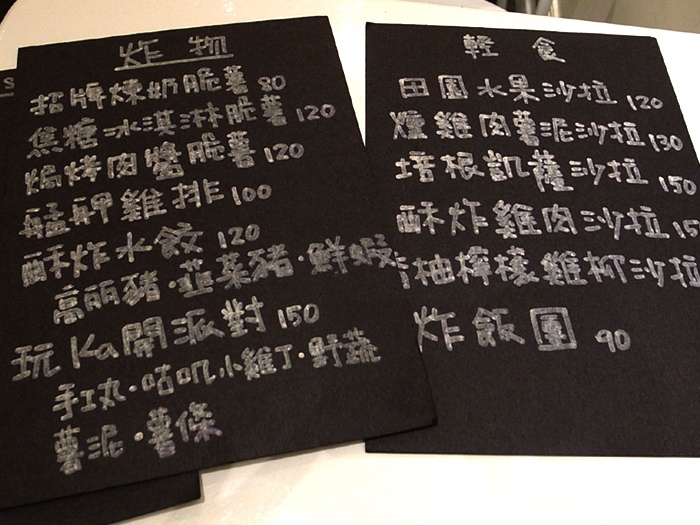 炸物
招牌煉奶脆薯 80
焦糖冰淇淋脆薯 120
焗烤肉醬脆薯 120
艋舺雞排 100
酥炸水餃 120
高丽豬·韮菜豬·鮮蝦
玩Ka開派對 150
手工丸·咕叽小雞丁·野蔬
薯泥·薯條
輕食
田園水果沙拉 120
燻雞肉薯泥沙拉 130
培根凱薩沙拉 150
酥炸雞肉沙拉 15
柚檸檬雞柳沙拉
炸飯團 90
S